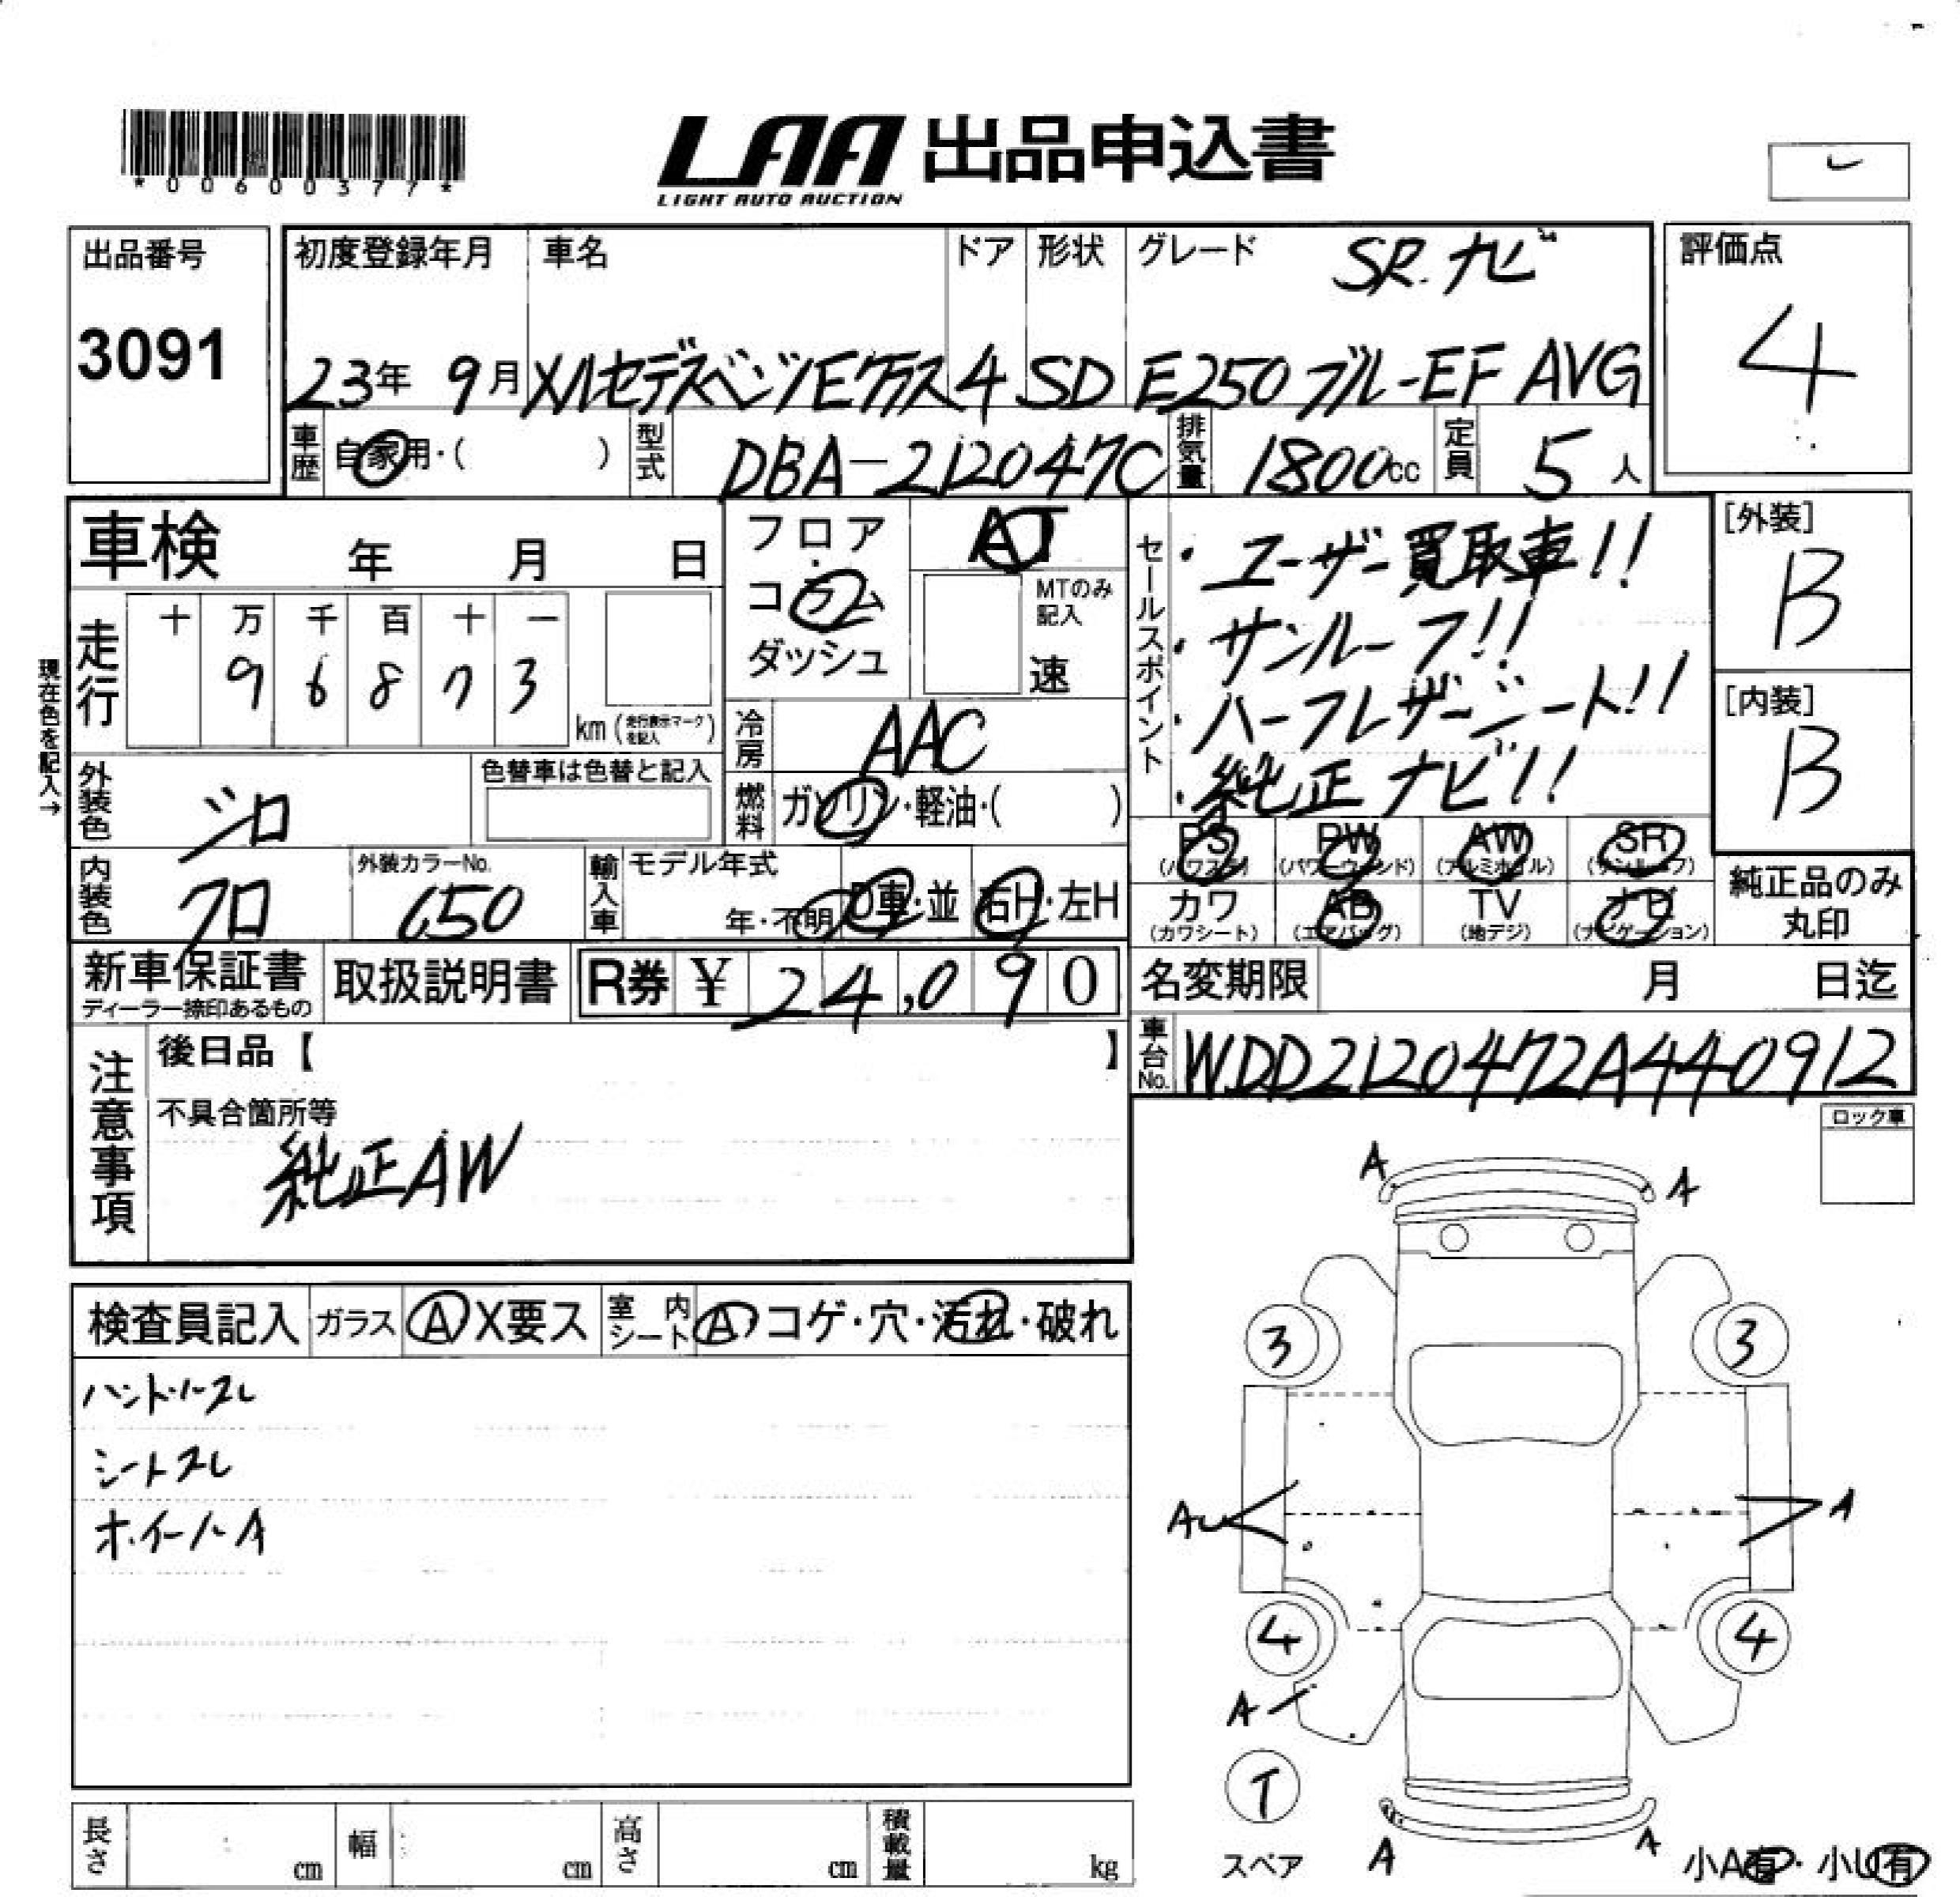 *00600377*
LAA 出品申込書
LIGHT AUTO AUCTION
出品番号
3091
初度登録年月
23年 9月
車名
メルセデスベンツEクラス
ドア
4
形状
SD
グレード
SR.ナビ
E250ブルーEF AVG
評価点
4
車歴 自家用・( )
型式 DBA-212047C
排気量 1800cc
定員 5人
車検 年 月 日
フロア・コラム ダッシュ
AT
MTのみ記入
速
セールスポイント
・ユーザー買取車!!
・サンルーフ!!
・ハーフレザーシート!!
・純正ナビ!!
[外装]
B
[内装]
B
現在色を記入→
走行
十 万 千 百 十 一
9 6 8 7 3
km (走行表示マークを記入)
冷房 AAC
燃料 ガソリン・軽油・( )
外装色 シロ
色替車は色替と記入
内装色 クロ
外装カラーNo.
650
輸入車 モデル年式
年・不明 D車・並 右H・左H
PS (パワステ)
PW (パワーウィンド)
AW (アルミホイル)
SR (サンルーフ)
カワ (カワシート)
AB (エアバッグ)
TV (地デジ)
ナビ (ナビゲーション)
純正品のみ丸印
新車保証書
ディーラー捺印あるもの
取扱説明書
R券 ¥ 24,090
名変期限 月 日迄
車台No. WDD2120472A440912
注意事項
後日品【 】
不具合箇所等
純正AW
ロック車
検査員記入
ガラス A X要ス
室内シート A コゲ・穴・汚れ・破れ
ハンドルスレ
シートスレ
ホイールA
A
A
3
3
A
4
4
A
T
スペア
A
A
小A有・小U有
長さ cm
幅 cm
高さ cm
積載量 kg